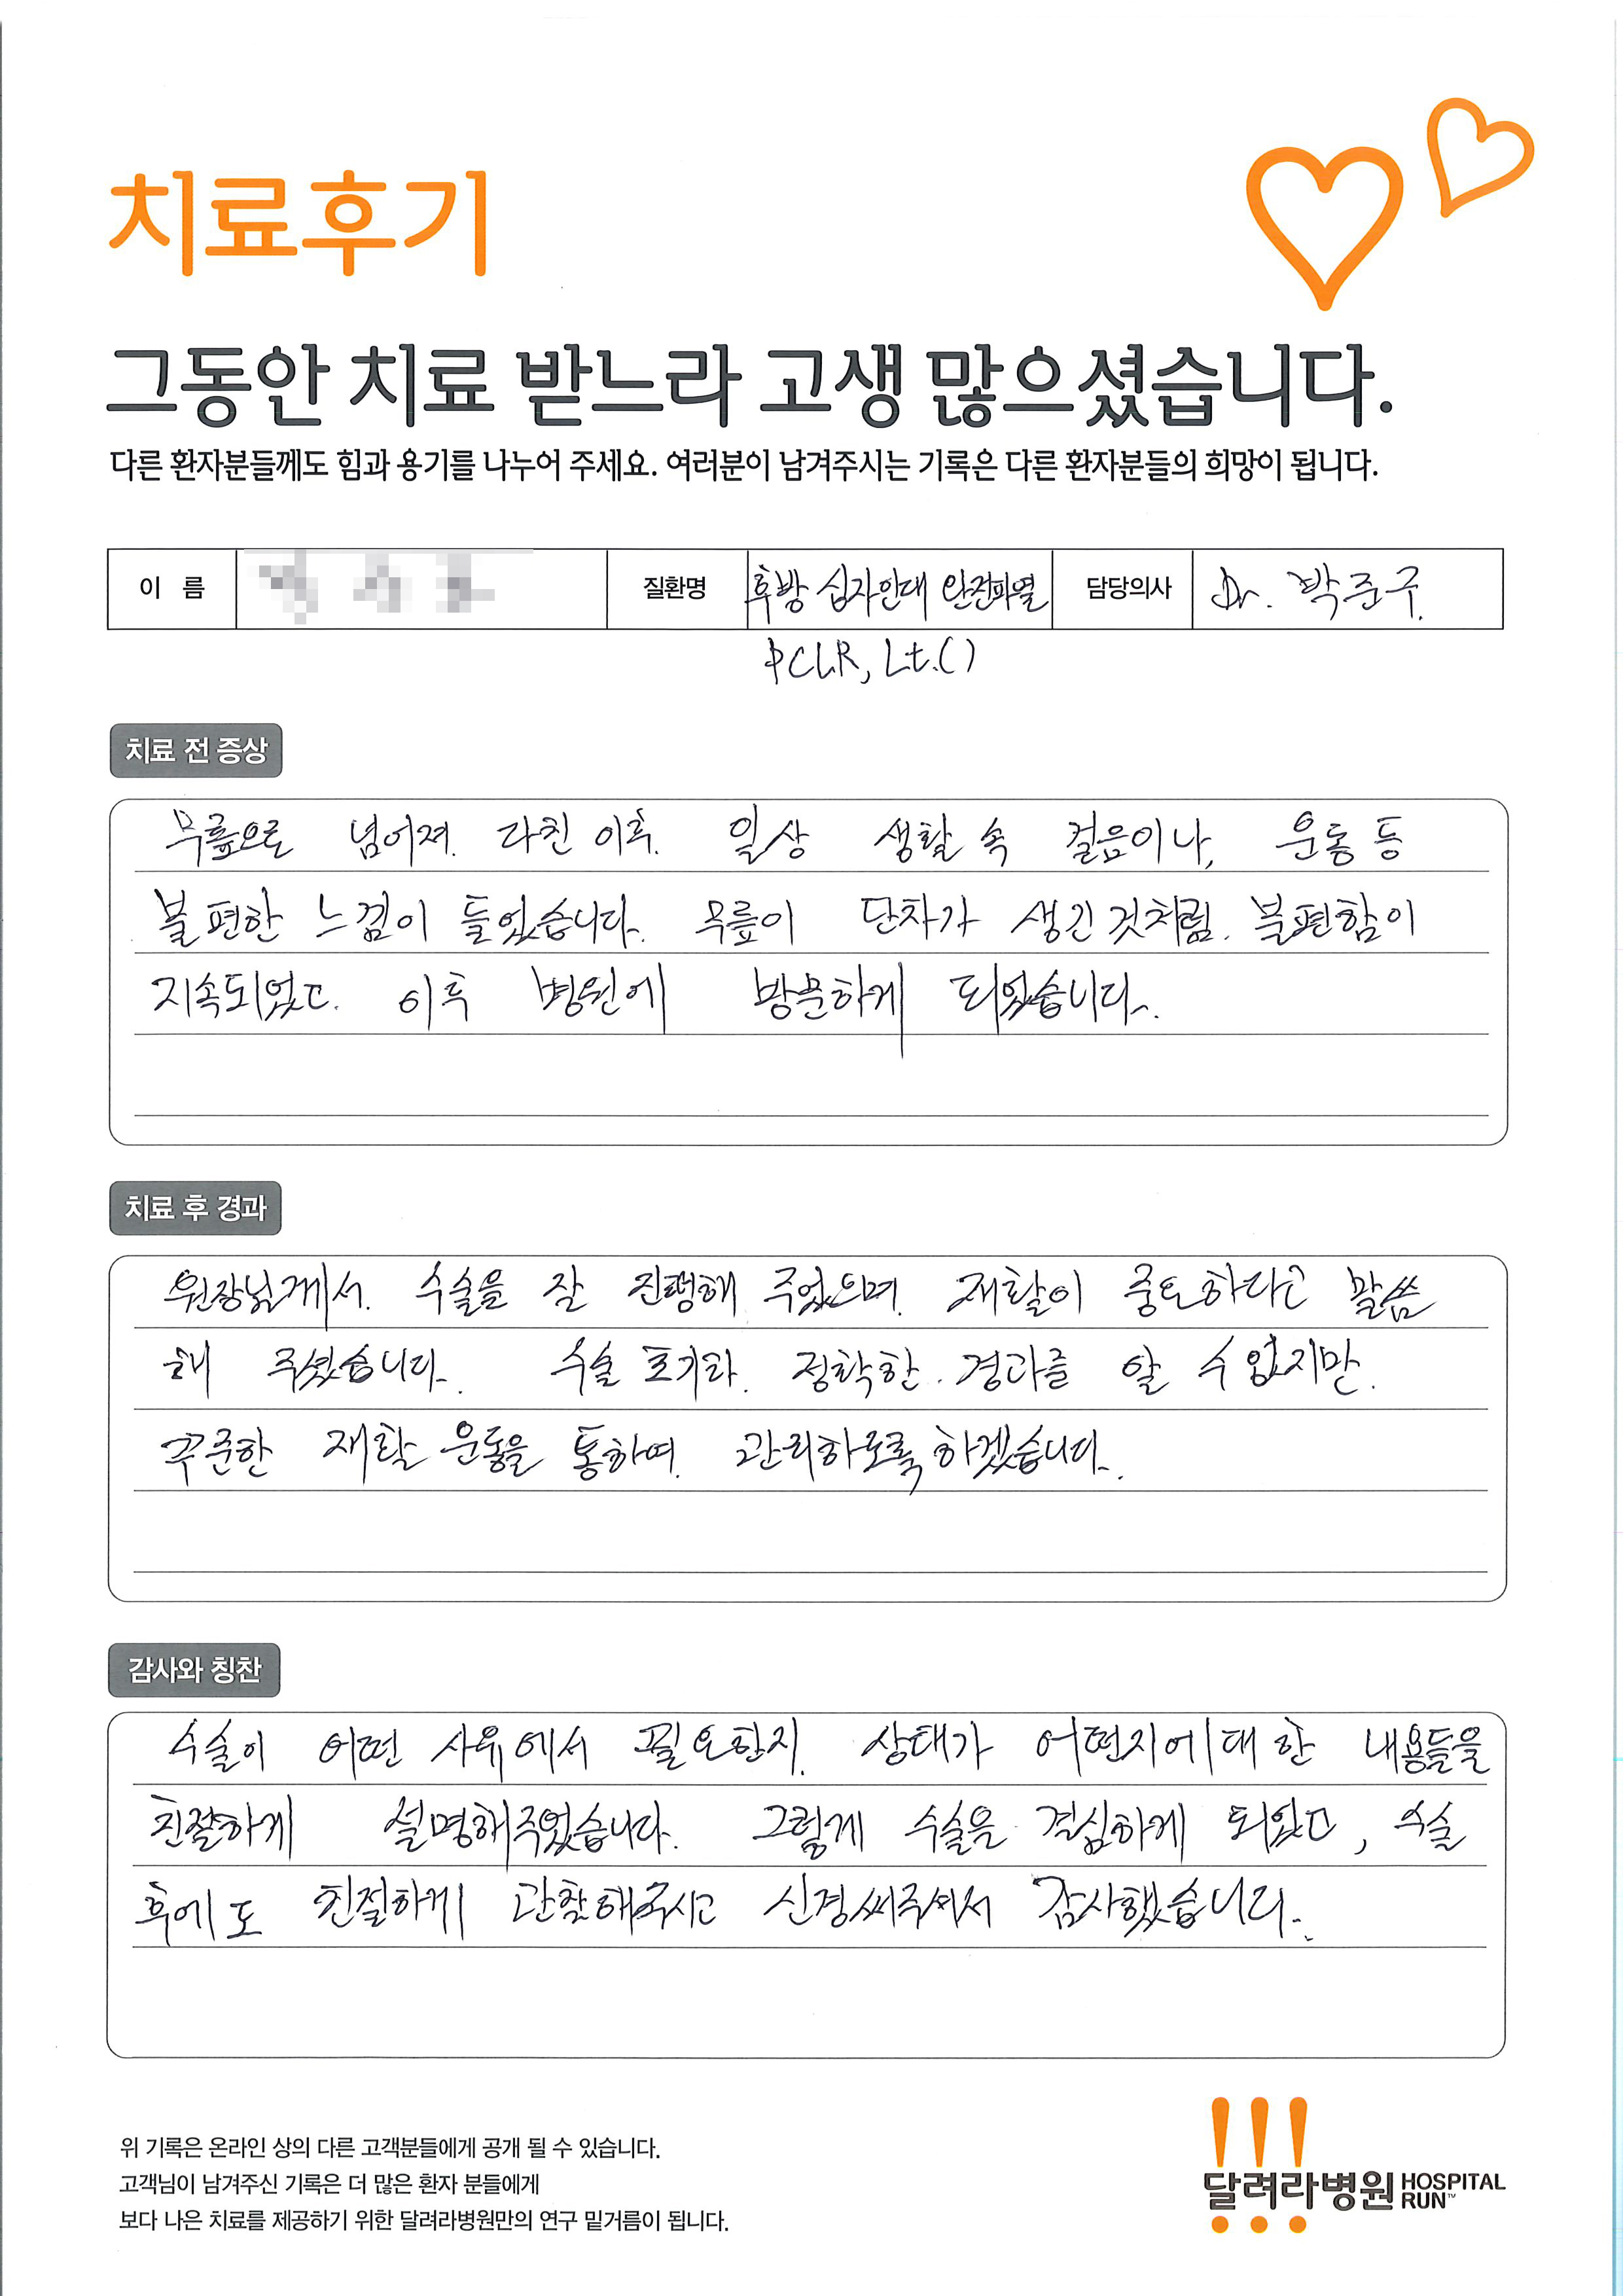 치료후기
그동안 치료 받느라 고생 많으셨습니다.
다른 환자분들께도 힘과 용기를 나누어 주세요. 여러분이 남겨주시는 기록은 다른 환자분들의 희망이 됩니다.
이 름 질환명 후방 십자인대 완전파열 담당의사 Dr. 박준구
PCLR, Lt.()
치료 전 증상
무릎으로 넘어져. 다친 이후. 일상 생활 속 걸음이나, 운동 등
불편한 느낌이 들었습니다. 무릎이 단차가 생긴것처럼. 불편함이
지속되었고. 이후 병원에 방문하게 되었습니다.
치료 후 경과
원장님께서. 수술을 잘 진행해 주었으며. 재활이 중요하다고 말씀
해 주셨습니다. 수술 초기라. 정확한. 경과를 알 수 없지만.
꾸준한 재활 운동을 통하여. 관리하도록 하겠습니다.
감사와 칭찬
수술이 어떤 사유에서 필요한지. 상태가 어떤지에 대한 내용들을
친절하게 설명해주었습니다. 그렇게 수술을 결심하게 되었고, 수술
후에도 친절하게 관찰해주시고 신경써주셔서 감사했습니다.
위 기록은 온라인 상의 다른 고객분들에게 공개 될 수 있습니다.
고객님이 남겨주신 기록은 더 많은 환자 분들에게
보다 나은 치료를 제공하기 위한 달려라병원만의 연구 밑거름이 됩니다.
달려라병원 HOSPITAL RUN™